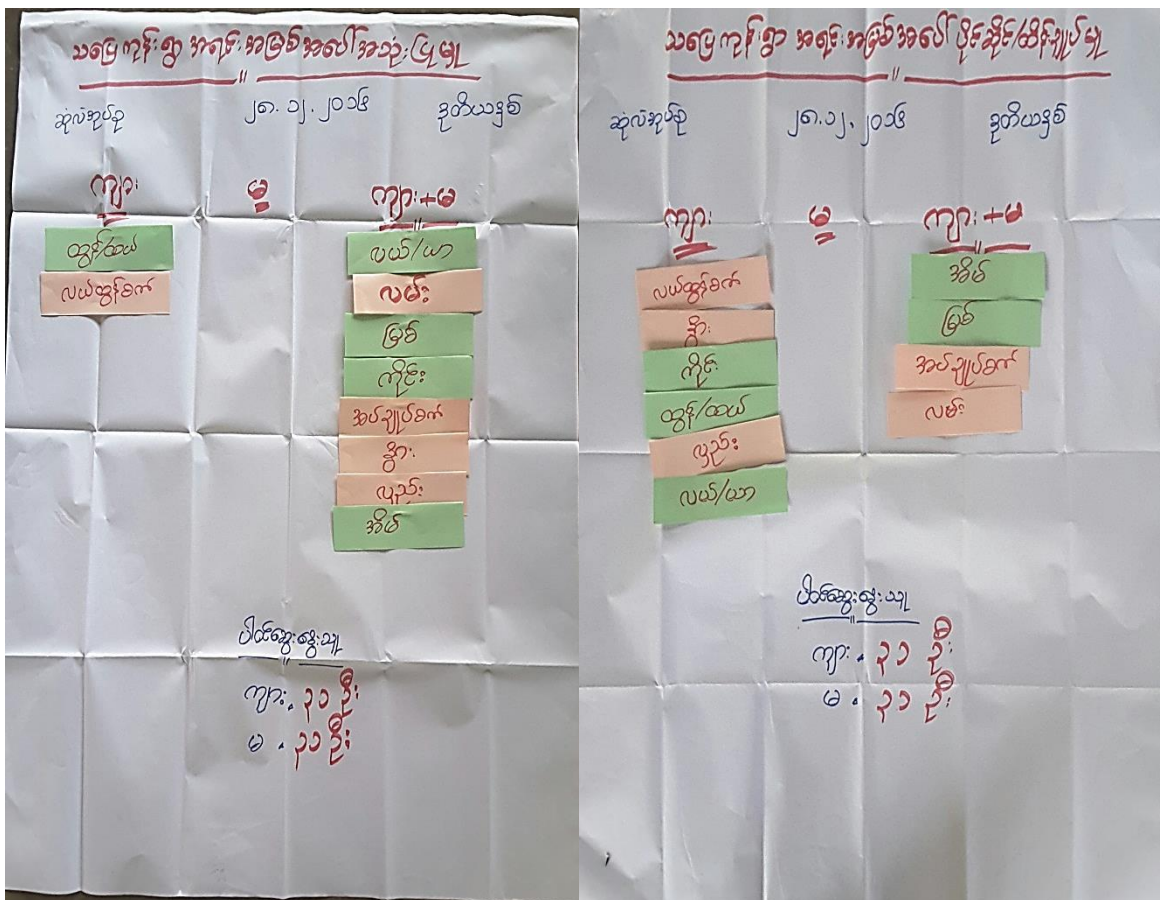 သပြေကုန်းရွာ အရင်းအမြစ်အပေါ် အသုံးပြုမှု
ဆုံလဲအုပ်စု ၂၈.၁၂.၂၀၁၆ ဒုတိယနှစ်
ကျား မ ကျား+မ
ထွန်/ထယ်
လယ်ထွန်စက်
လယ်/ယာ
လမ်း
မြစ်
ကိုင်း
အပ်ချုပ်စက်
နွား
လှည်း
အိမ်
ပါဝင်ဆွေးနွေးသူ
ကျား . ၃၁ ဦး
မ . ၃၁ ဦး
သပြေကုန်းရွာ အရင်းအမြစ်အပေါ် ပိုင်ဆိုင်/ထိန်းချုပ်မှု
ဆုံလဲအုပ်စု ၂၈.၁၂.၂၀၁၆ ဒုတိယနှစ်
ကျား မ ကျား+မ
လယ်ထွန်စက်
နွား
ကိုင်း
ထွန်/ထယ်
လှည်း
လယ်/ယာ
အိမ်
မြစ်
အပ်ချုပ်စက်
လမ်း
ပါဝင်ဆွေးနွေးသူ
ကျား . ၃၁ ဦး
မ . ၃၁ ဦး